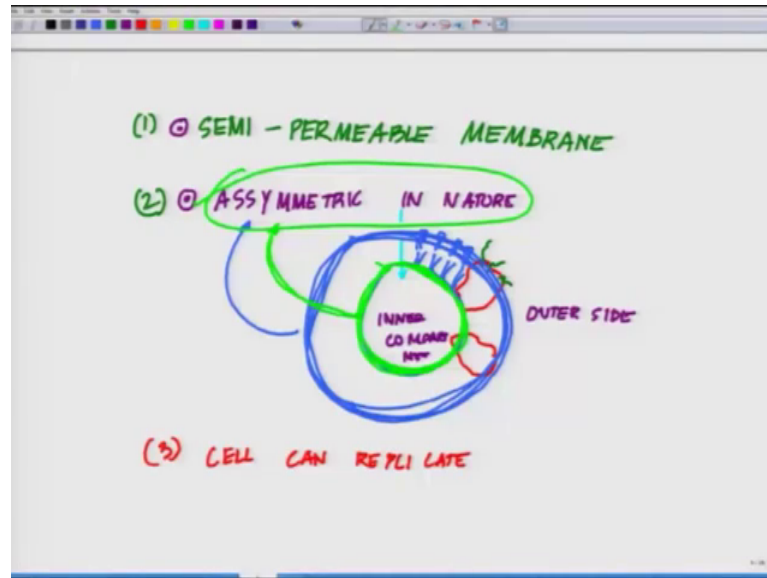 (1) SEMI - PERMEABLE MEMBRANE
(2) ASSYMMETRIC IN NATURE
INNER
COMPART
MNT
OUTER SIDE
(3) CELL CAN REPLICATE